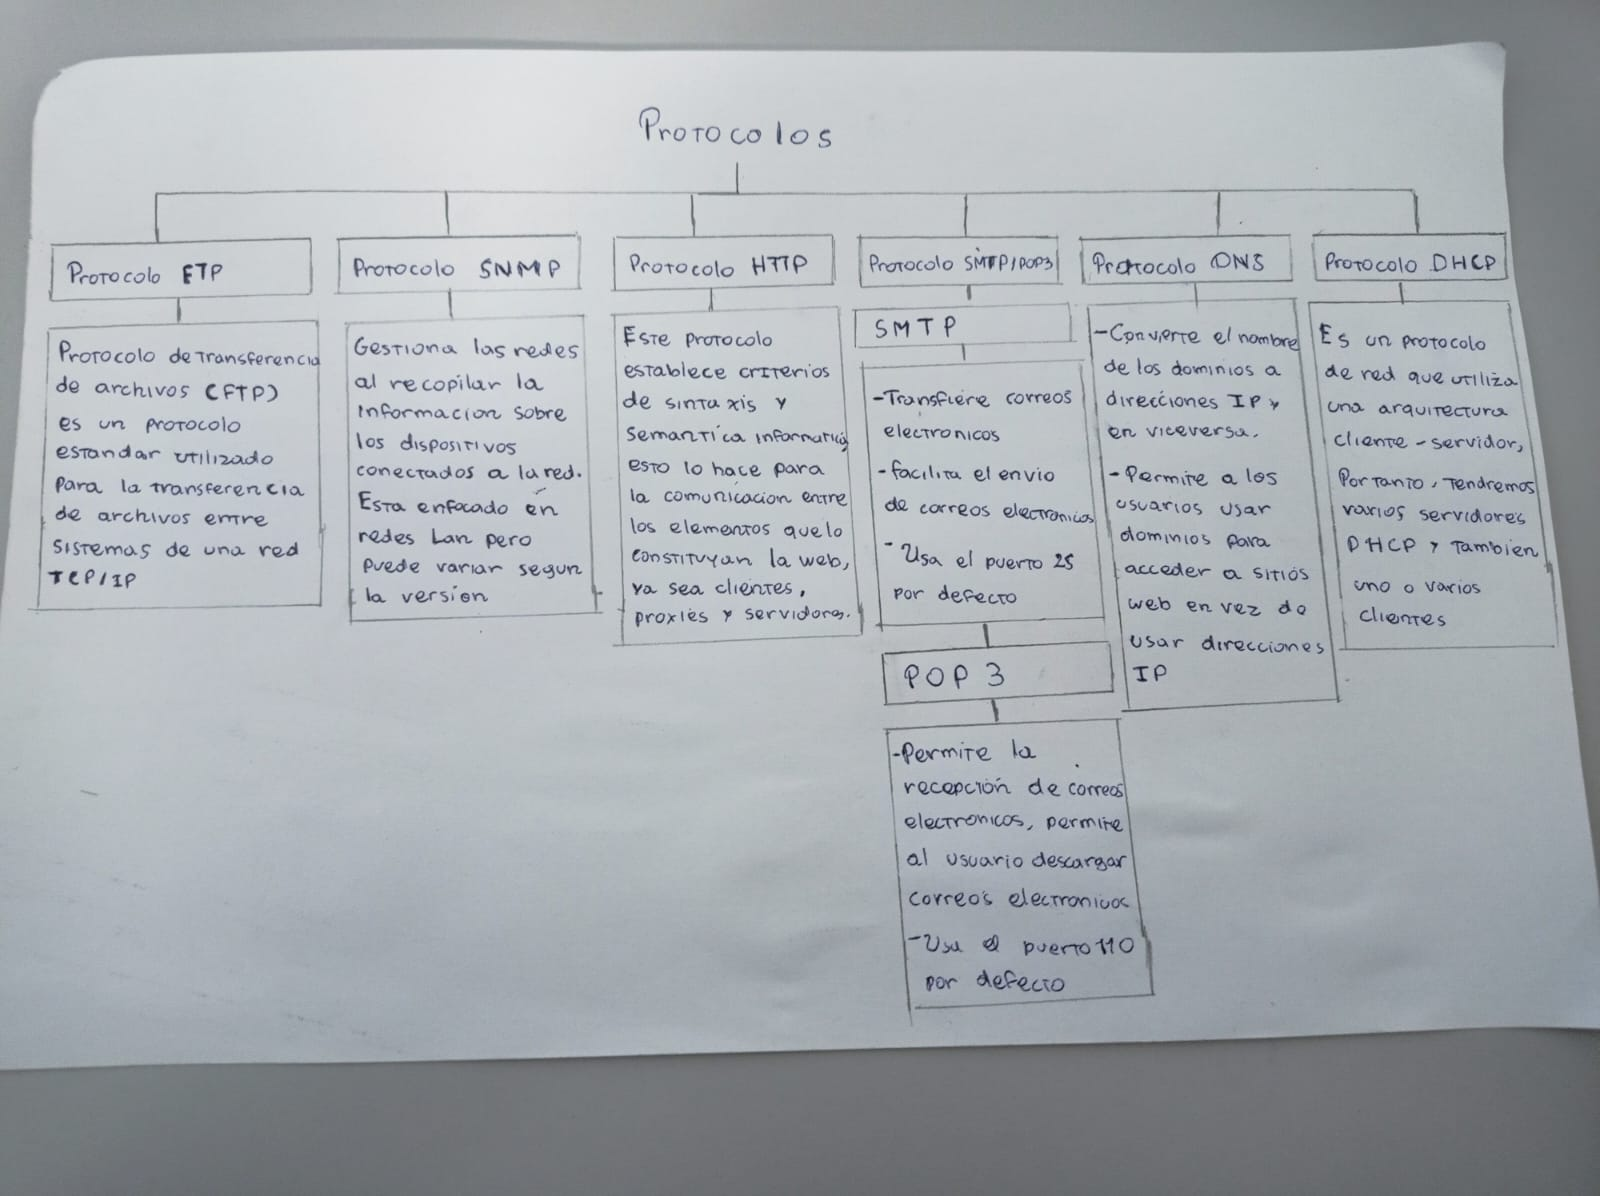 Protocolos
Protocolo FTP
Protocolo de Transferencia
de archivos (FTP)
es un protocolo
estandar utilizado
para la transferencia
de archivos entre
sistemas de una red
TCP/IP
Protocolo SNMP
Gestiona las redes
al recopilar la
informacion sobre
los dispositivos
conectados a la red.
Esta enfocado en
redes Lan pero
puede variar segun
la version
Protocolo HTTP
Este protocolo
establece criterios
de sintaxis y
semantica informatica
esto lo hace para
la comunicacion entre
los elementos que lo
constituyan la web,
ya sea clientes,
proxies y servidores.
Protocolo SMTP/POP3
SMTP
-Transfiere correos
electronicos
-facilita el envio
de correos electronicos
- Usa el puerto 25
por defecto
POP 3
-Permite la
recepción de correos
electronicos, permite
al usuario descargar
correos electronicos
-Usa el puerto 110
por defecto
Protocolo DNS
-Convierte el nombre
de los dominios a
direcciones IP y
en viceversa.
-Permite a los
usuarios usar
dominios para
acceder a sitios
web en vez de
usar direcciones
IP
Protocolo DHCP
Es un protocolo
de red que utiliza
una arquitectura
cliente-servidor,
Por tanto, tendremos
varios servidores
DHCP y tambien
uno o varios
clientes